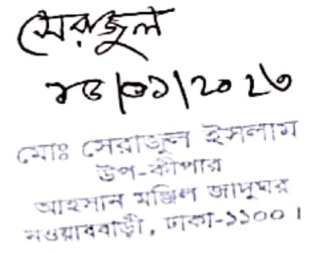 সেরাজুল
১৮/০১/২০২৩
মোঃ সেরাজুল ইসলাম
উপ-কীপার
আহসান মঞ্জিল জাদুঘর
নওয়াববাড়ী, ঢাকা-১১০০।